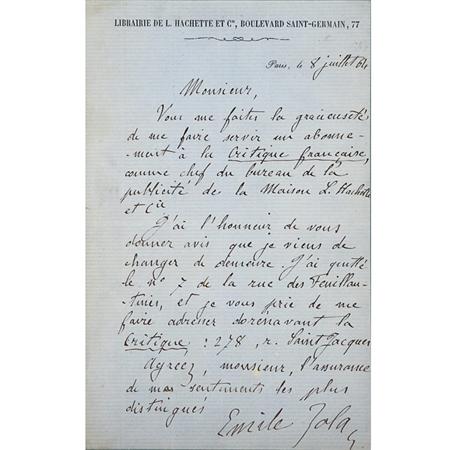 LIBRAIRIE DE L. HACHETTE ET Cie, BOULEVARD SAINT-GERMAIN, 77
Paris, le 8 juillet 64
Monsieur,
Vous me faites la gracieuseté
de me faire servir un abonne-
-ment à la Critique française,
comme chef du bureau de la
publicité de la Maison L. Hachette
et Cie
J'ai l'honneur de vous
donner avis que je viens de
changer de demeure. J'ai quitté
le n° 7 de la rue des Feuillan-
-tines, et je vous prie de me
faire adresser dorénavant la
Critique : 278, r. Saint Jacques
Agréez, monsieur, l'assurance
de mes sentiments les plus
distingués
Emile Zola